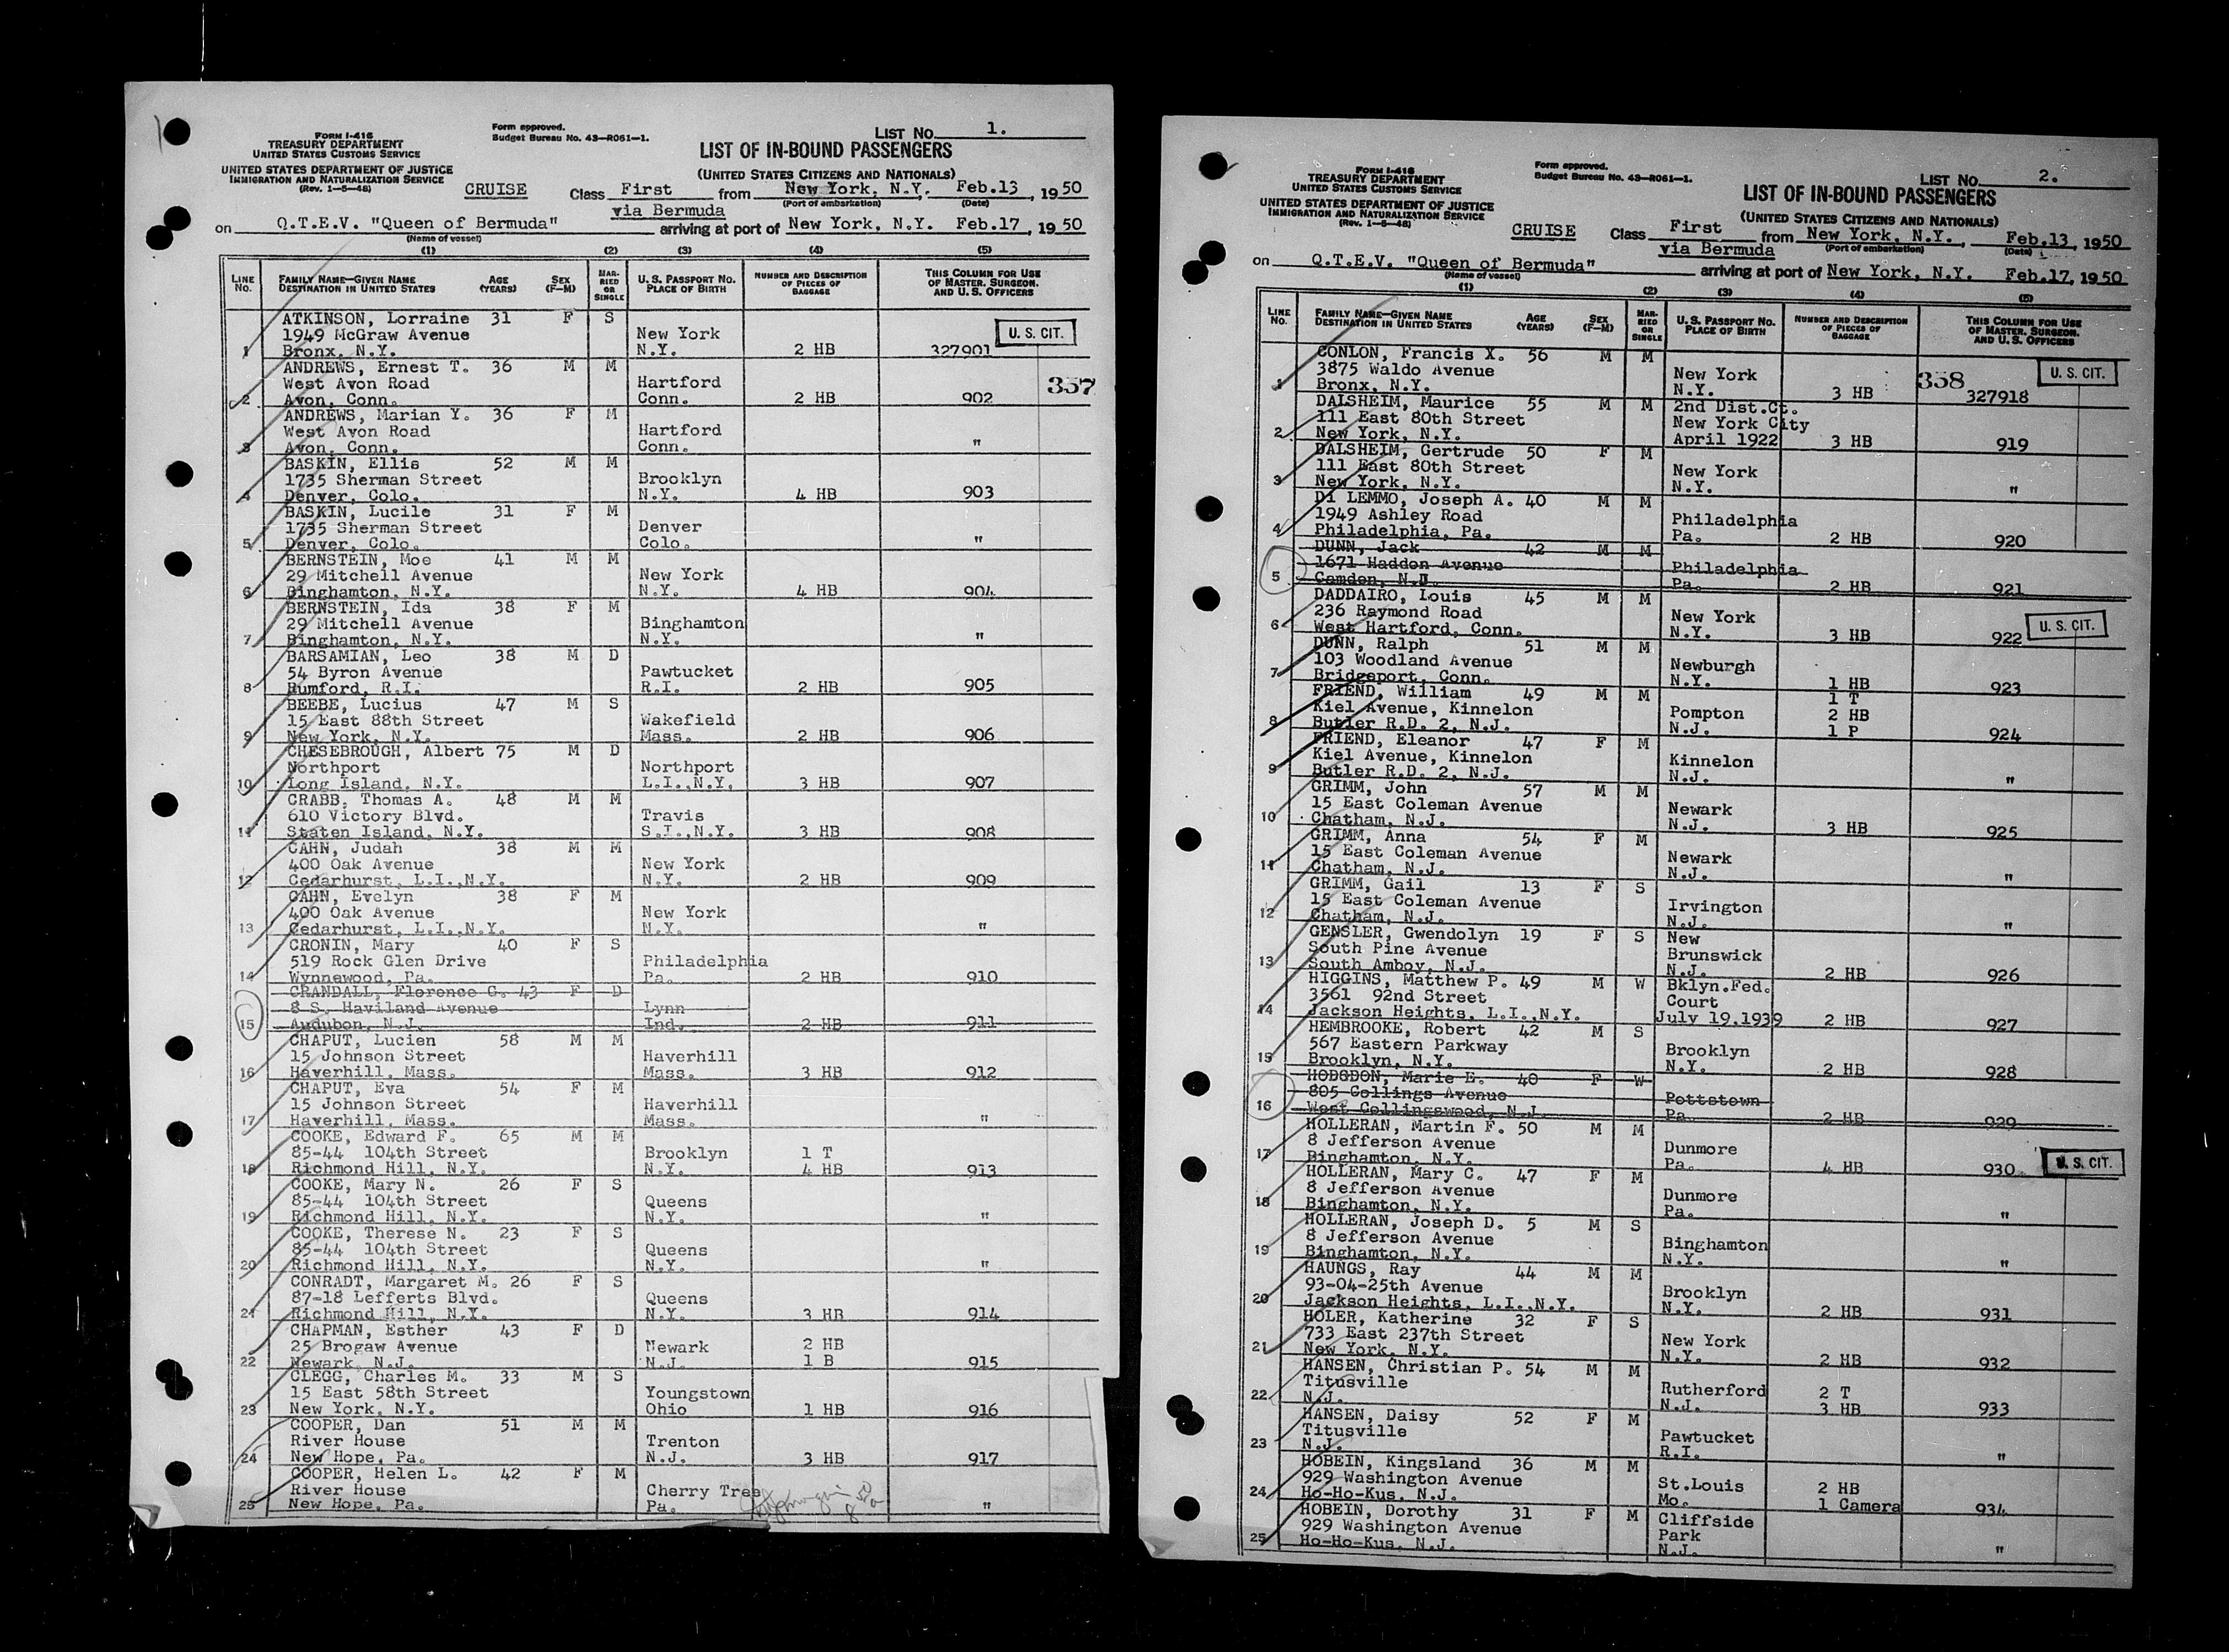 FORM I-416
TREASURY DEPARTMENT
UNITED STATES CUSTOMS SERVICE
UNITED STATES DEPARTMENT OF JUSTICE
IMMIGRATION AND NATURALIZATION SERVICE
(Rev. 1-5-48)
Form approved.
Budget Bureau No. 43-R061-1.
LIST No. 1.
LIST OF IN-BOUND PASSENGERS
(UNITED STATES CITIZENS AND NATIONALS)
CRUISE Class First from New York, N.Y. Feb.13, 1950
via Bermuda (Port of embarkation) (Date)
on Q.T.E.V. "Queen of Bermuda" arriving at port of New York, N.Y. Feb.17, 1950
(Name of vessel)
(1) (2) (3) (4) (5)
LINE No. FAMILY NAME—GIVEN NAME DESTINATION IN UNITED STATES AGE (YEARS) SEX (F-M) MARRIED OR SINGLE U. S. PASSPORT NO. PLACE OF BIRTH NUMBER AND DESCRIPTION OF PIECES OF BAGGAGE THIS COLUMN FOR USE OF MASTER, SURGEON, AND U. S. OFFICERS
ATKINSON, Lorraine 31 F S
1949 McGraw Avenue New York U. S. CIT.
1 Bronx, N.Y. N.Y. 2 HB 327901
ANDREWS, Ernest T. 36 M M
West Avon Road Hartford 357
2 Avon, Conn. Conn. 2 HB 902
ANDREWS, Marian Y. 36 F M
West Avon Road Hartford
3 Avon, Conn. Conn. "
BASKIN, Ellis 52 M M
1735 Sherman Street Brooklyn
4 Denver, Colo. N.Y. 4 HB 903
BASKIN, Lucile 31 F M
1735 Sherman Street Denver
5 Denver, Colo. Colo. "
BERNSTEIN, Moe 41 M M
29 Mitchell Avenue New York
6 Binghamton, N.Y. N.Y. 4 HB 904
BERNSTEIN, Ida 38 F M
29 Mitchell Avenue Binghamton
7 Binghamton, N.Y. N.Y. "
BARSAMIAN, Leo 38 M D
54 Byron Avenue Pawtucket
8 Rumford, R.I. R.I. 2 HB 905
BEEBE, Lucius 47 M S
15 East 88th Street Wakefield
9 New York, N.Y. Mass. 2 HB 906
CHESEBROUGH, Albert 75 M D
Northport Northport
10 Long Island, N.Y. L.I.,N.Y. 3 HB 907
CRABB, Thomas A. 48 M M
610 Victory Blvd. Travis
11 Staten Island, N.Y. S.I.,N.Y. 3 HB 908
CAHN, Judah 38 M M
400 Oak Avenue New York
12 Cedarhurst, L.I.,N.Y. N.Y. 2 HB 909
CAHN, Evelyn 38 F M
400 Oak Avenue New York
13 Cedarhurst, L.I.,N.Y. N.Y. "
CRONIN, Mary 40 F S
519 Rock Glen Drive Philadelphia
14 Wynnewood, Pa. Pa. 2 HB 910
CRANDALL, Florence C. 43 F D
8 S. Haviland Avenue Lynn
15 Audubon, N.J. Ind. 2 HB 911
CHAPUT, Lucien 58 M M
15 Johnson Street Haverhill
16 Haverhill, Mass. Mass. 3 HB 912
CHAPUT, Eva 54 F M
15 Johnson Street Haverhill
17 Haverhill, Mass. Mass. "
COOKE, Edward F. 65 M M
85-44 104th Street Brooklyn 1 T
18 Richmond Hill, N.Y. N.Y. 4 HB 913
COOKE, Mary N. 26 F S
85-44 104th Street Queens
19 Richmond Hill, N.Y. N.Y. "
COOKE, Therese N. 23 F S
85-44 104th Street Queens
20 Richmond Hill, N.Y. N.Y. "
CONRADT, Margaret M. 26 F S
87-18 Lefferts Blvd. Queens
21 Richmond Hill, N.Y. N.Y. 3 HB 914
CHAPMAN, Esther 43 F D
25 Brogaw Avenue Newark 2 HB
22 Newark, N.J. N.J. 1 B 915
CLEGG, Charles M. 33 M S
15 East 58th Street Youngstown
23 New York, N.Y. Ohio 1 HB 916
COOPER, Dan 51 M M
River House Trenton
24 New Hope, Pa. N.J. 3 HB 917
COOPER, Helen L. 42 F M
River House Cherry Tree
25 New Hope, Pa. Pa. "
FORM I-416
TREASURY DEPARTMENT
UNITED STATES CUSTOMS SERVICE
UNITED STATES DEPARTMENT OF JUSTICE
IMMIGRATION AND NATURALIZATION SERVICE
(Rev. 1-5-48)
Form approved.
Budget Bureau No. 43-R061-1.
LIST No. 2.
LIST OF IN-BOUND PASSENGERS
(UNITED STATES CITIZENS AND NATIONALS)
CRUISE Class First from New York, N.Y., Feb.13, 1950
via Bermuda (Port of embarkation) (Date)
on Q.T.E.V. "Queen of Bermuda" arriving at port of New York, N.Y. Feb.17, 1950
(Name of vessel)
(1) (2) (3) (4) (5)
LINE No. FAMILY NAME—GIVEN NAME DESTINATION IN UNITED STATES AGE (YEARS) SEX (F-M) MARRIED OR SINGLE U. S. PASSPORT NO. PLACE OF BIRTH NUMBER AND DESCRIPTION OF PIECES OF BAGGAGE THIS COLUMN FOR USE OF MASTER, SURGEON, AND U. S. OFFICERS
CONLON, Francis X. 56 M M
3875 Waldo Avenue New York 358 U. S. CIT.
1 Bronx, N.Y. N.Y. 3 HB 327918
DALSHEIM, Maurice 55 M M 2nd Dist.Ct.
111 East 80th Street New York City
2 New York, N.Y. April 1922 3 HB 919
DALSHEIM, Gertrude 50 F M
111 East 80th Street New York
3 New York, N.Y. N.Y. "
Di LEMMO, Joseph A. 40 M M
1949 Ashley Road Philadelphia
4 Philadelphia, Pa. Pa. 2 HB 920
DUNN, Jack 42 M M
1671 Haddon Avenue Philadelphia
5 Camden, N.J. Pa. 2 HB 921
DADDAIRO, Louis 45 M M
236 Raymond Road New York U. S. CIT.
6 West Hartford, Conn. N.Y. 3 HB 922
DUNN, Ralph 51 M M
103 Woodland Avenue Newburgh
7 Bridgeport, Conn. N.Y. 1 HB 923
FRIEND, William 49 M M 1 T
Kiel Avenue, Kinnelon Pompton 2 HB
8 Butler R.D. 2, N.J. N.J. 1 P 924
FRIEND, Eleanor 47 F M
Kiel Avenue, Kinnelon Kinnelon
9 Butler R.D. 2, N.J. N.J. "
GRIMM, John 57 M M
15 East Coleman Avenue Newark
10 Chatham, N.J. N.J. 3 HB 925
GRIMM, Anna 54 F M
15 East Coleman Avenue Newark
11 Chatham, N.J. N.J. "
GRIMM, Gail 13 F S
15 East Coleman Avenue Irvington
12 Chatham, N.J. N.J. "
GENSLER, Gwendolyn 19 F S New
South Pine Avenue Brunswick
13 South Amboy, N.J. N.J. 2 HB 926
HIGGINS, Matthew P. 49 M W Bklyn.Fed.
3561 92nd Street Court
14 Jackson Heights, L.I.,N.Y. July 19.1939 2 HB 927
HEMBROOKE, Robert 42 M S
567 Eastern Parkway Brooklyn
15 Brooklyn, N.Y. N.Y. 2 HB 928
HODGDON, Marie E. 40 F W
805 Collings Avenue Pottstown
16 West Collingswood, N.J. Pa. 2 HB 929
HOLLERAN, Martin F. 50 M M
8 Jefferson Avenue Dunmore
17 Binghamton, N.Y. Pa. 4 HB 930 U. S. CIT.
HOLLERAN, Mary C. 47 F M
8 Jefferson Avenue Dunmore
18 Binghamton, N.Y. Pa. "
HOLLERAN, Joseph D. 5 M S
8 Jefferson Avenue Binghamton
19 Binghamton, N.Y. N.Y. "
HAUNGS, Ray 44 M M
93-04-25th Avenue Brooklyn
20 Jackson Heights, L.I.,N.Y. N.Y. 2 HB 931
HOLER, Katherine 32 F S
733 East 237th Street New York
21 New York, N.Y. N.Y. 2 HB 932
HANSEN, Christian P. 54 M M
Titusville Rutherford 2 T
22 N.J. N.J. 3 HB 933
HANSEN, Daisy 52 F M
Titusville Pawtucket
23 N.J. R.I. "
HOBEIN, Kingsland 36 M M
929 Washington Avenue St.Louis 2 HB
24 Ho-Ho-Kus, N.J. Mo. 1 Camera 934
HOBEIN, Dorothy 31 F M Cliffside
929 Washington Avenue Park
25 Ho-Ho-Kus, N.J. N.J. "